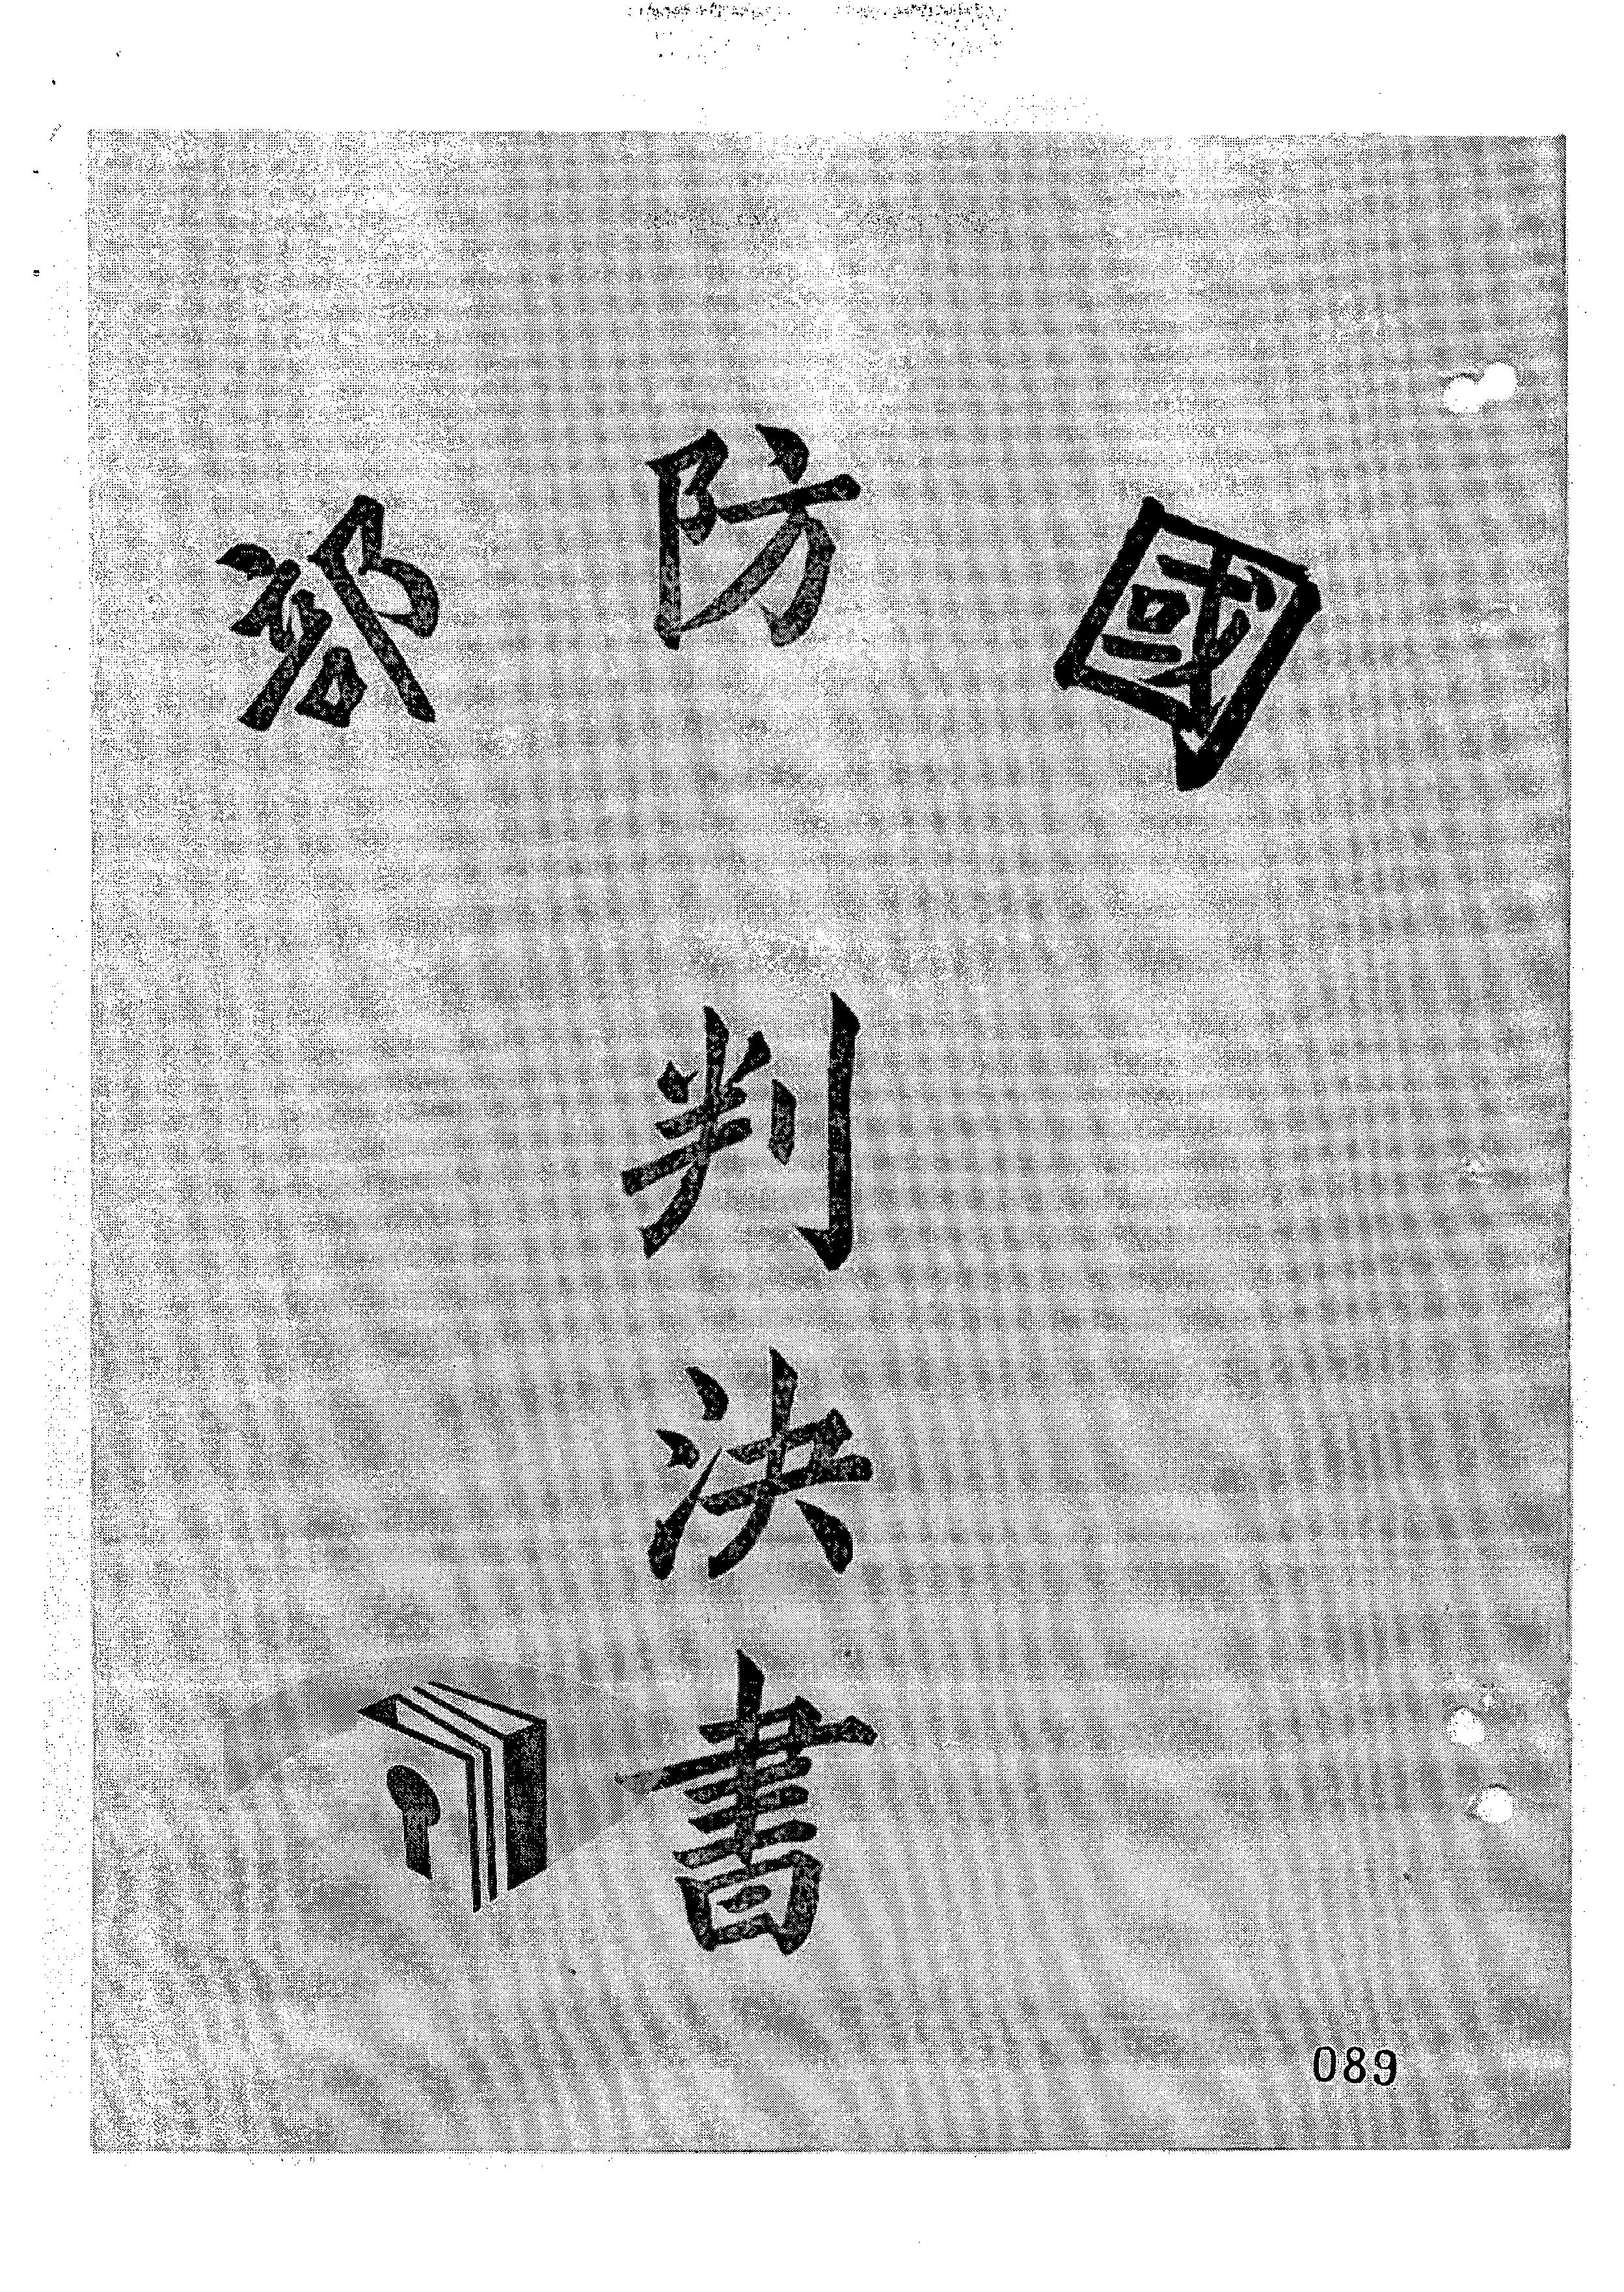 國防部
判決書
089